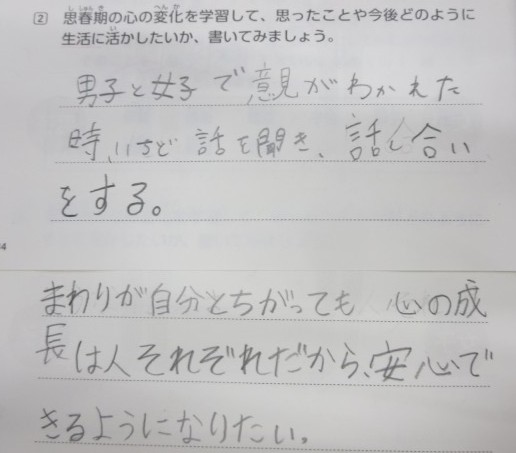 2 思春期の心の変化を学習して、思ったことや今後どのように
生活に活かしたいか、書いてみましょう。
男子と女子で意見がわかれた
時、いちど話を聞き、話し合い
をする。
まわりが自分とちがっても 心の成
長は人それぞれだから、安心で
きるようになりたい。